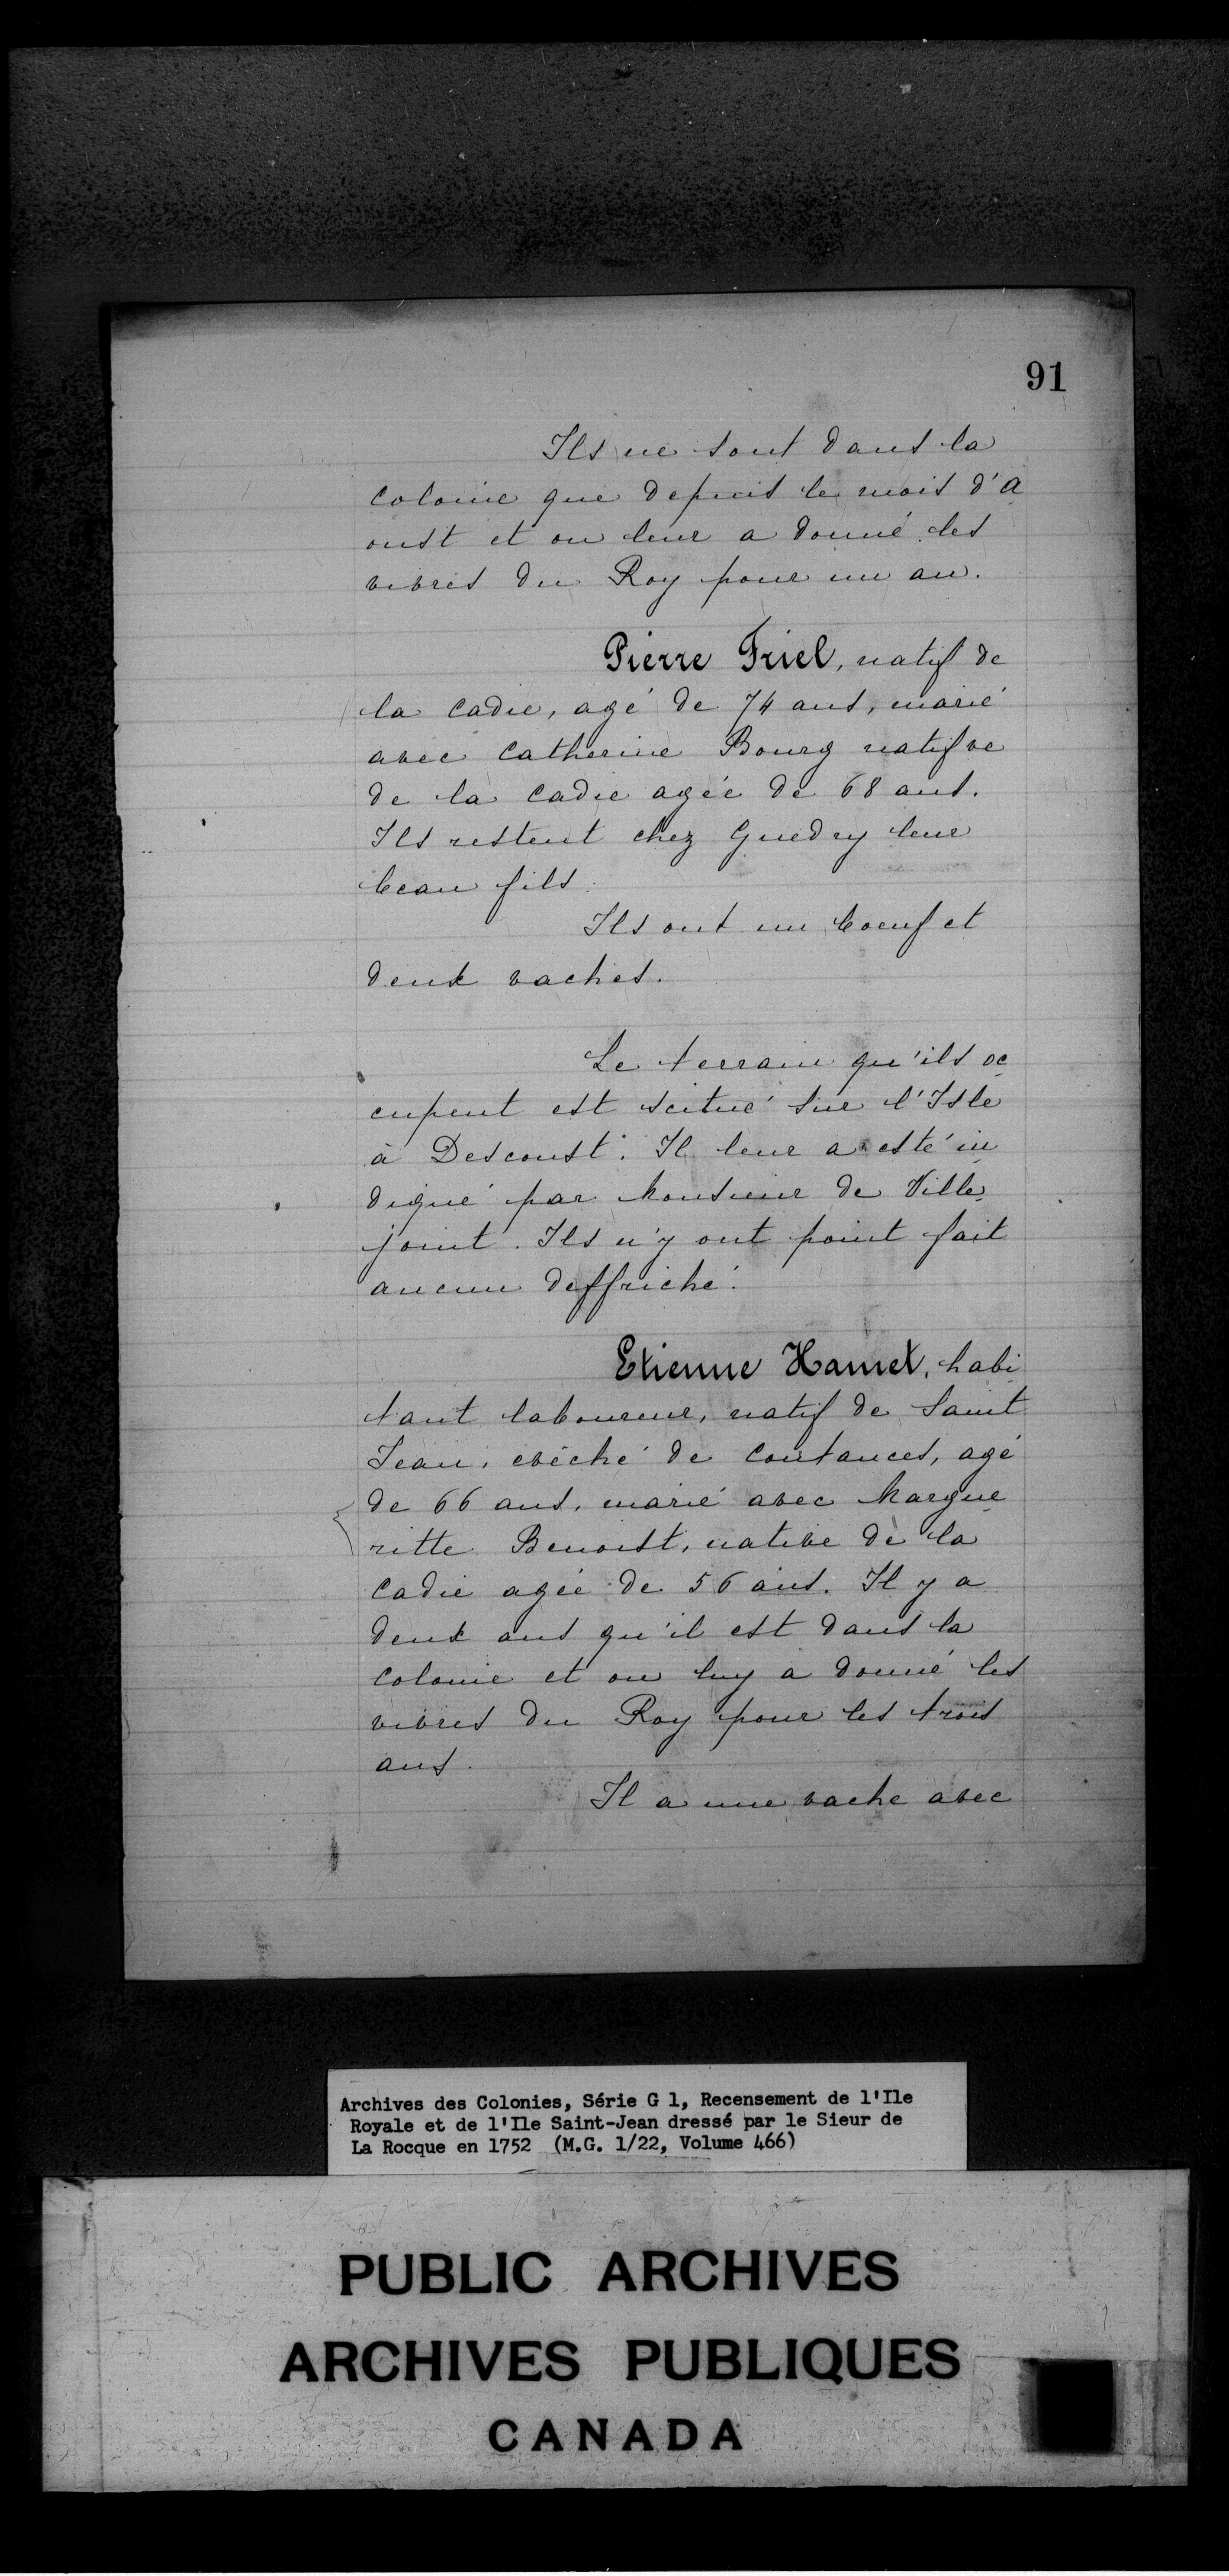 91
Ils ne sont dans la
colonie que depuis le mois d'A
oust et on leur a donné les
vivres du Roy pour un an.
Pierre Friel, natif de
la Cadie, agé de 74 ans, marié
avec Catherine Bourg natifve
de la Cadie agée de 68 ans.
Ils restent chez Guedry leur
beau fils.
Ils ont un boeuf et
deux vaches.
Le terrain qu'ils oc
cupent est scitué sur l'Isle
à Descoust. Il leur a esté in
diqué par Monsieur de Ville
joint. Ils n'y ont point fait
aucun deffriché.
Etienne Hamet, habi
tant laboureur, natif de Saint
Jean, evêché de Coutances, agé
de 66 ans, marié avec Margue
ritte Benoist, native de la
Cadie agée de 56 ans. Il y a
deux ans qu'il est dans la
colonie et on luy a donné les
vivres du Roy pour les trois
ans.
Il a une vache avec
Archives des Colonies, Série G 1, Recensement de l'Ile
Royale et de l'Ile Saint-Jean dressé par le Sieur de
La Rocque en 1752 (M.G. 1/22, Volume 466)
PUBLIC ARCHIVES
ARCHIVES PUBLIQUES
CANADA